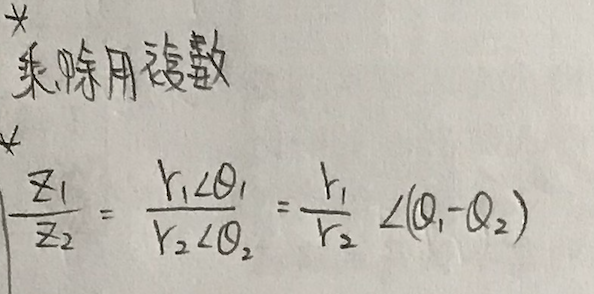 *
乘除用複數
*
z₁/z₂ = r₁∠θ₁/r₂∠θ₂ = r₁/r₂ ∠(θ₁-θ₂)